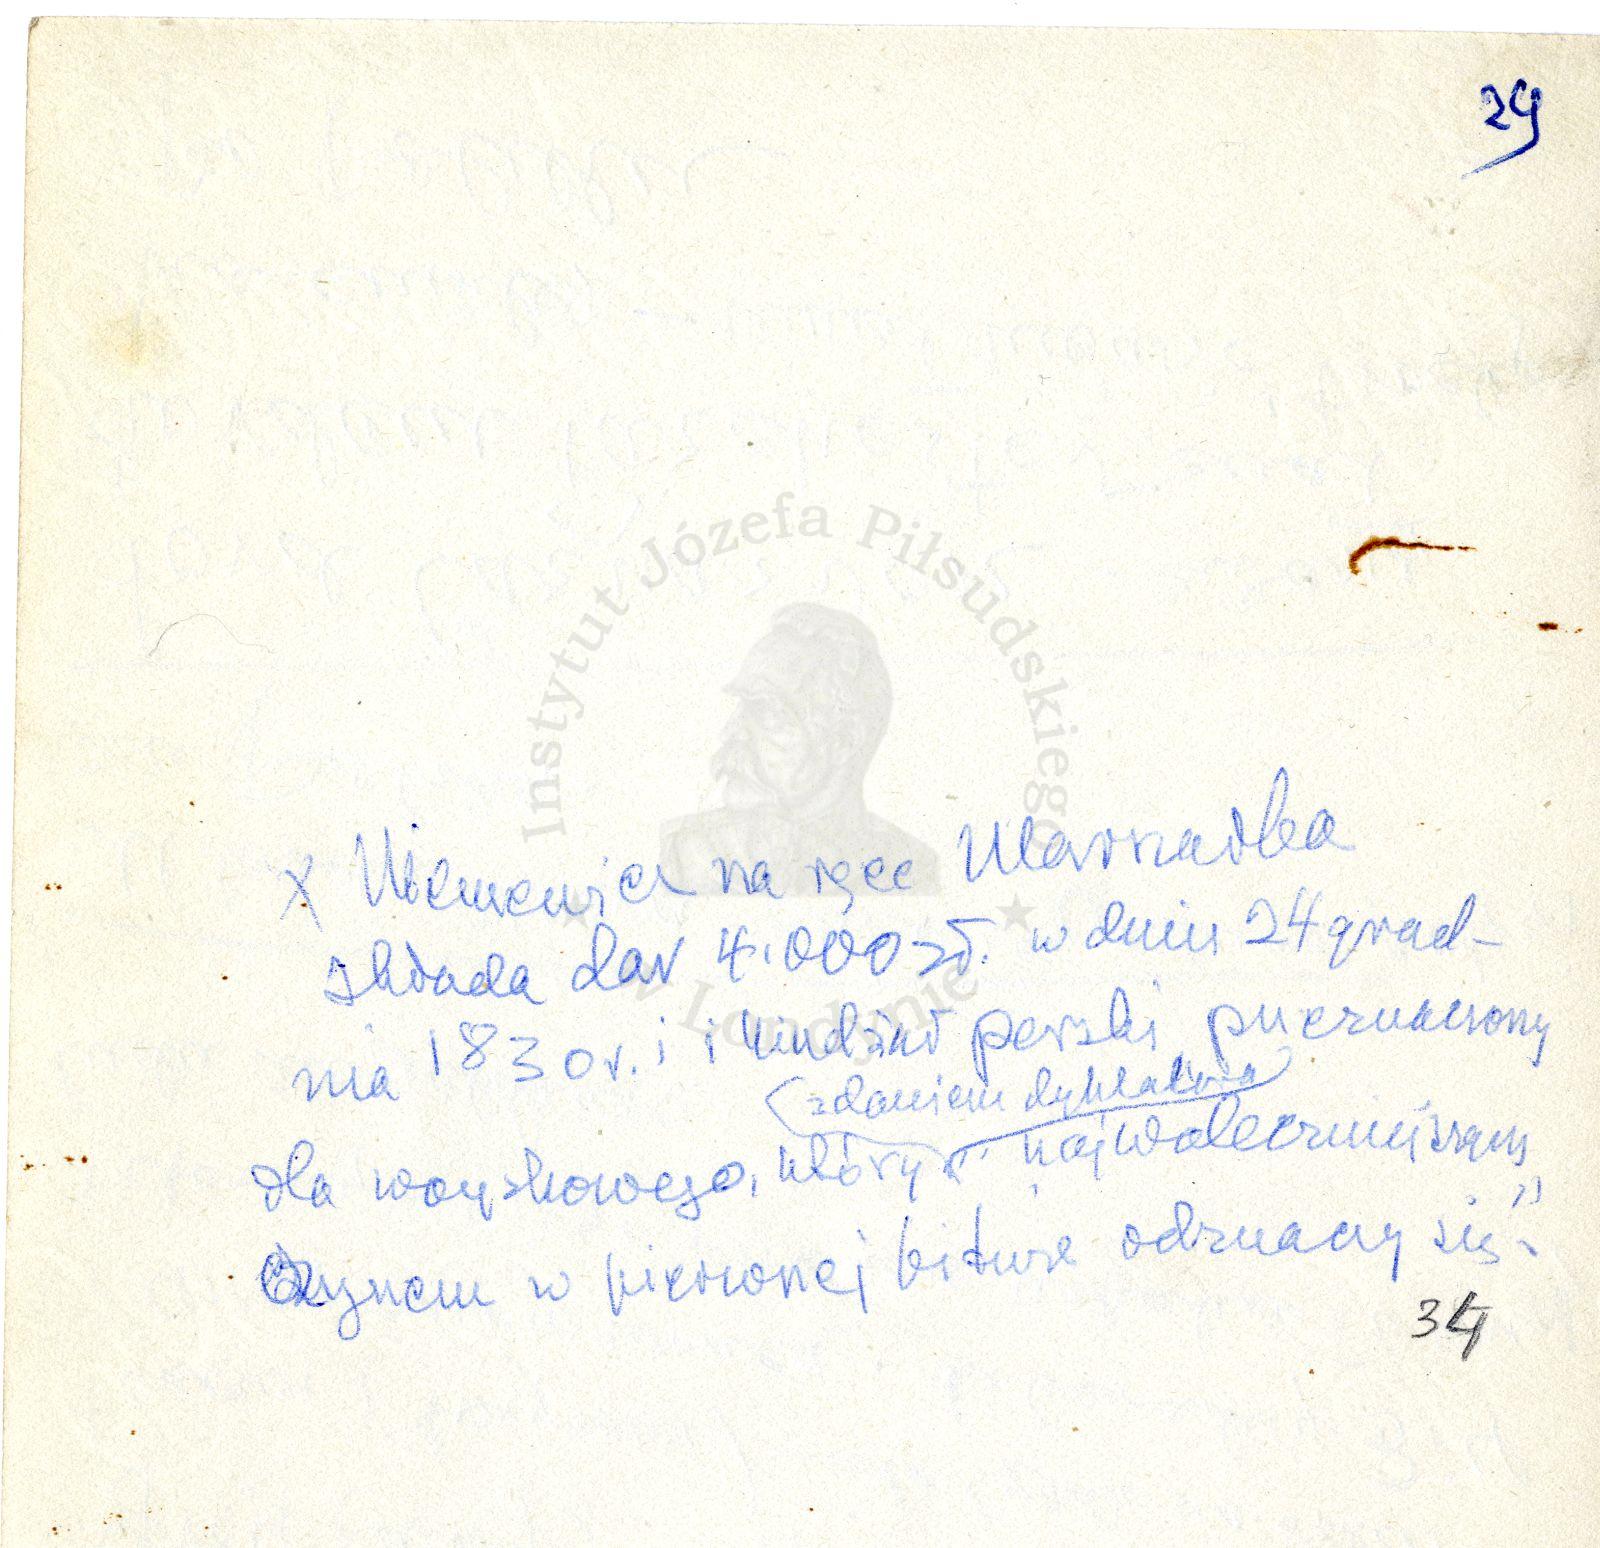 29
Instytut Józefa Piłsudskiego
w Londynie
x Niemcewicz na ręce Marszałka
składa dar 4.000 zł. w dniu 24 grud-
nia 1830 r. i i kindżał perski przeznaczony
(zdaniem dyktatora)
dla woyskowego, który najwaleczniejszym
czynem w pierwszej bitwie odznaczy się"
34